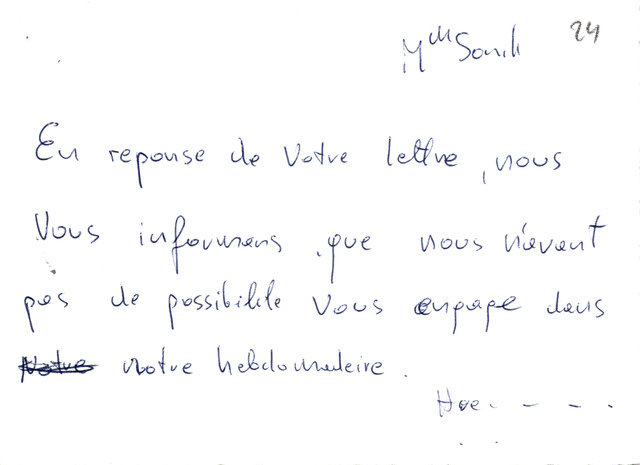 24
Mme Sonili
En reponse de votre lettre, nous
Vous informans que nous n'avant
pas de possibilite Vous engage dans
notre hebdomadeire.